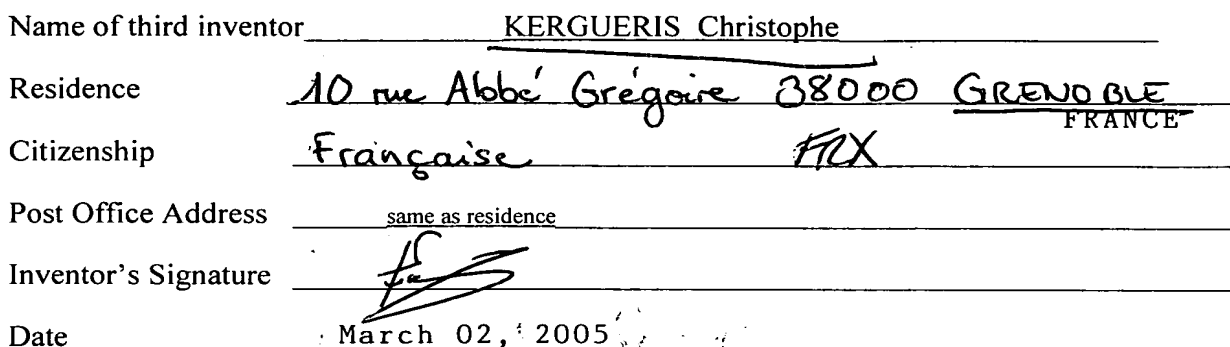 Name of third inventor KERGUERIS Christophe
Residence 10 rue Abbé Grégoire 38000 GRENOBLE
FRANCE
Citizenship Française FRX
Post Office Address same as residence
Inventor's Signature
Date March 02, 2005